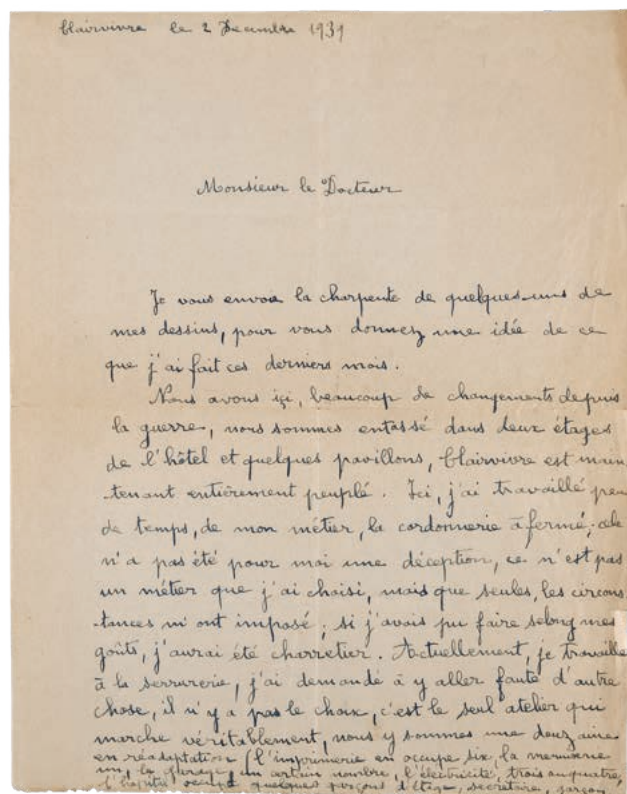 Clairvivre le 2 Decembre 1939
Monsieur le Docteur
Je vous envoie la charpente de quelques-uns de
mes dessins, pour vous donnez une idée de ce
que j'ai fait ces derniers mois.
Nous avons içi, beaucoup de changements depuis
la guerre, nous sommes entassé dans deux étages
de l'hôtel et quelques pavillons, Clairvivre est main
tenant entièrement peuplé. Ici, j'ai travaillé peu
de temps, de mon métier, la cordonnerie à fermé; cela
n'a pas été pour moi une déception, ce n'est pas
un métier que j'ai choisi, mais que seules, les circons
tances m'ont imposé; si j'avais pu faire selong mes
goûts, j'aurai été charretier. Actuellement, je travaille
à la serrurerie, j'ai demandé à y aller faute d'autre
chose, il n'y a pas le choix, c'est le seul atelier qui
marche véritablement, nous y sommes une douzaine
en réadaptation (l'imprimerie en occupe six, la menuiserie
un, le garage, un certain nombre, l'électricité, trois ou quatre,
l'hopital occupe quelques garçons d'étage, secrétaire, garçon